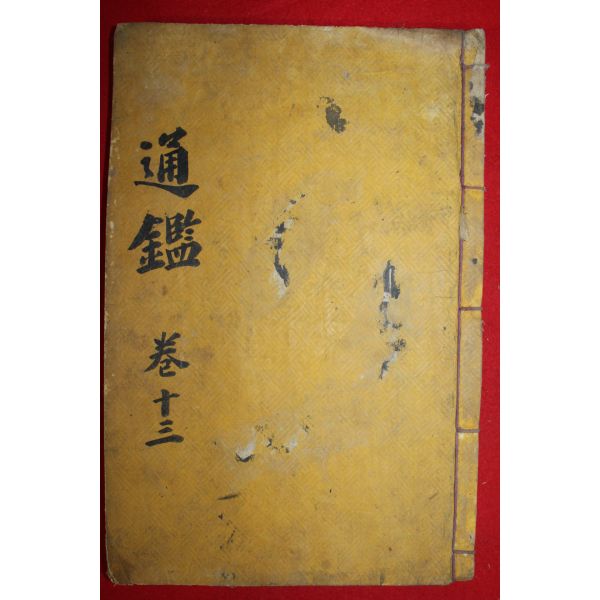 通鑑 卷十三